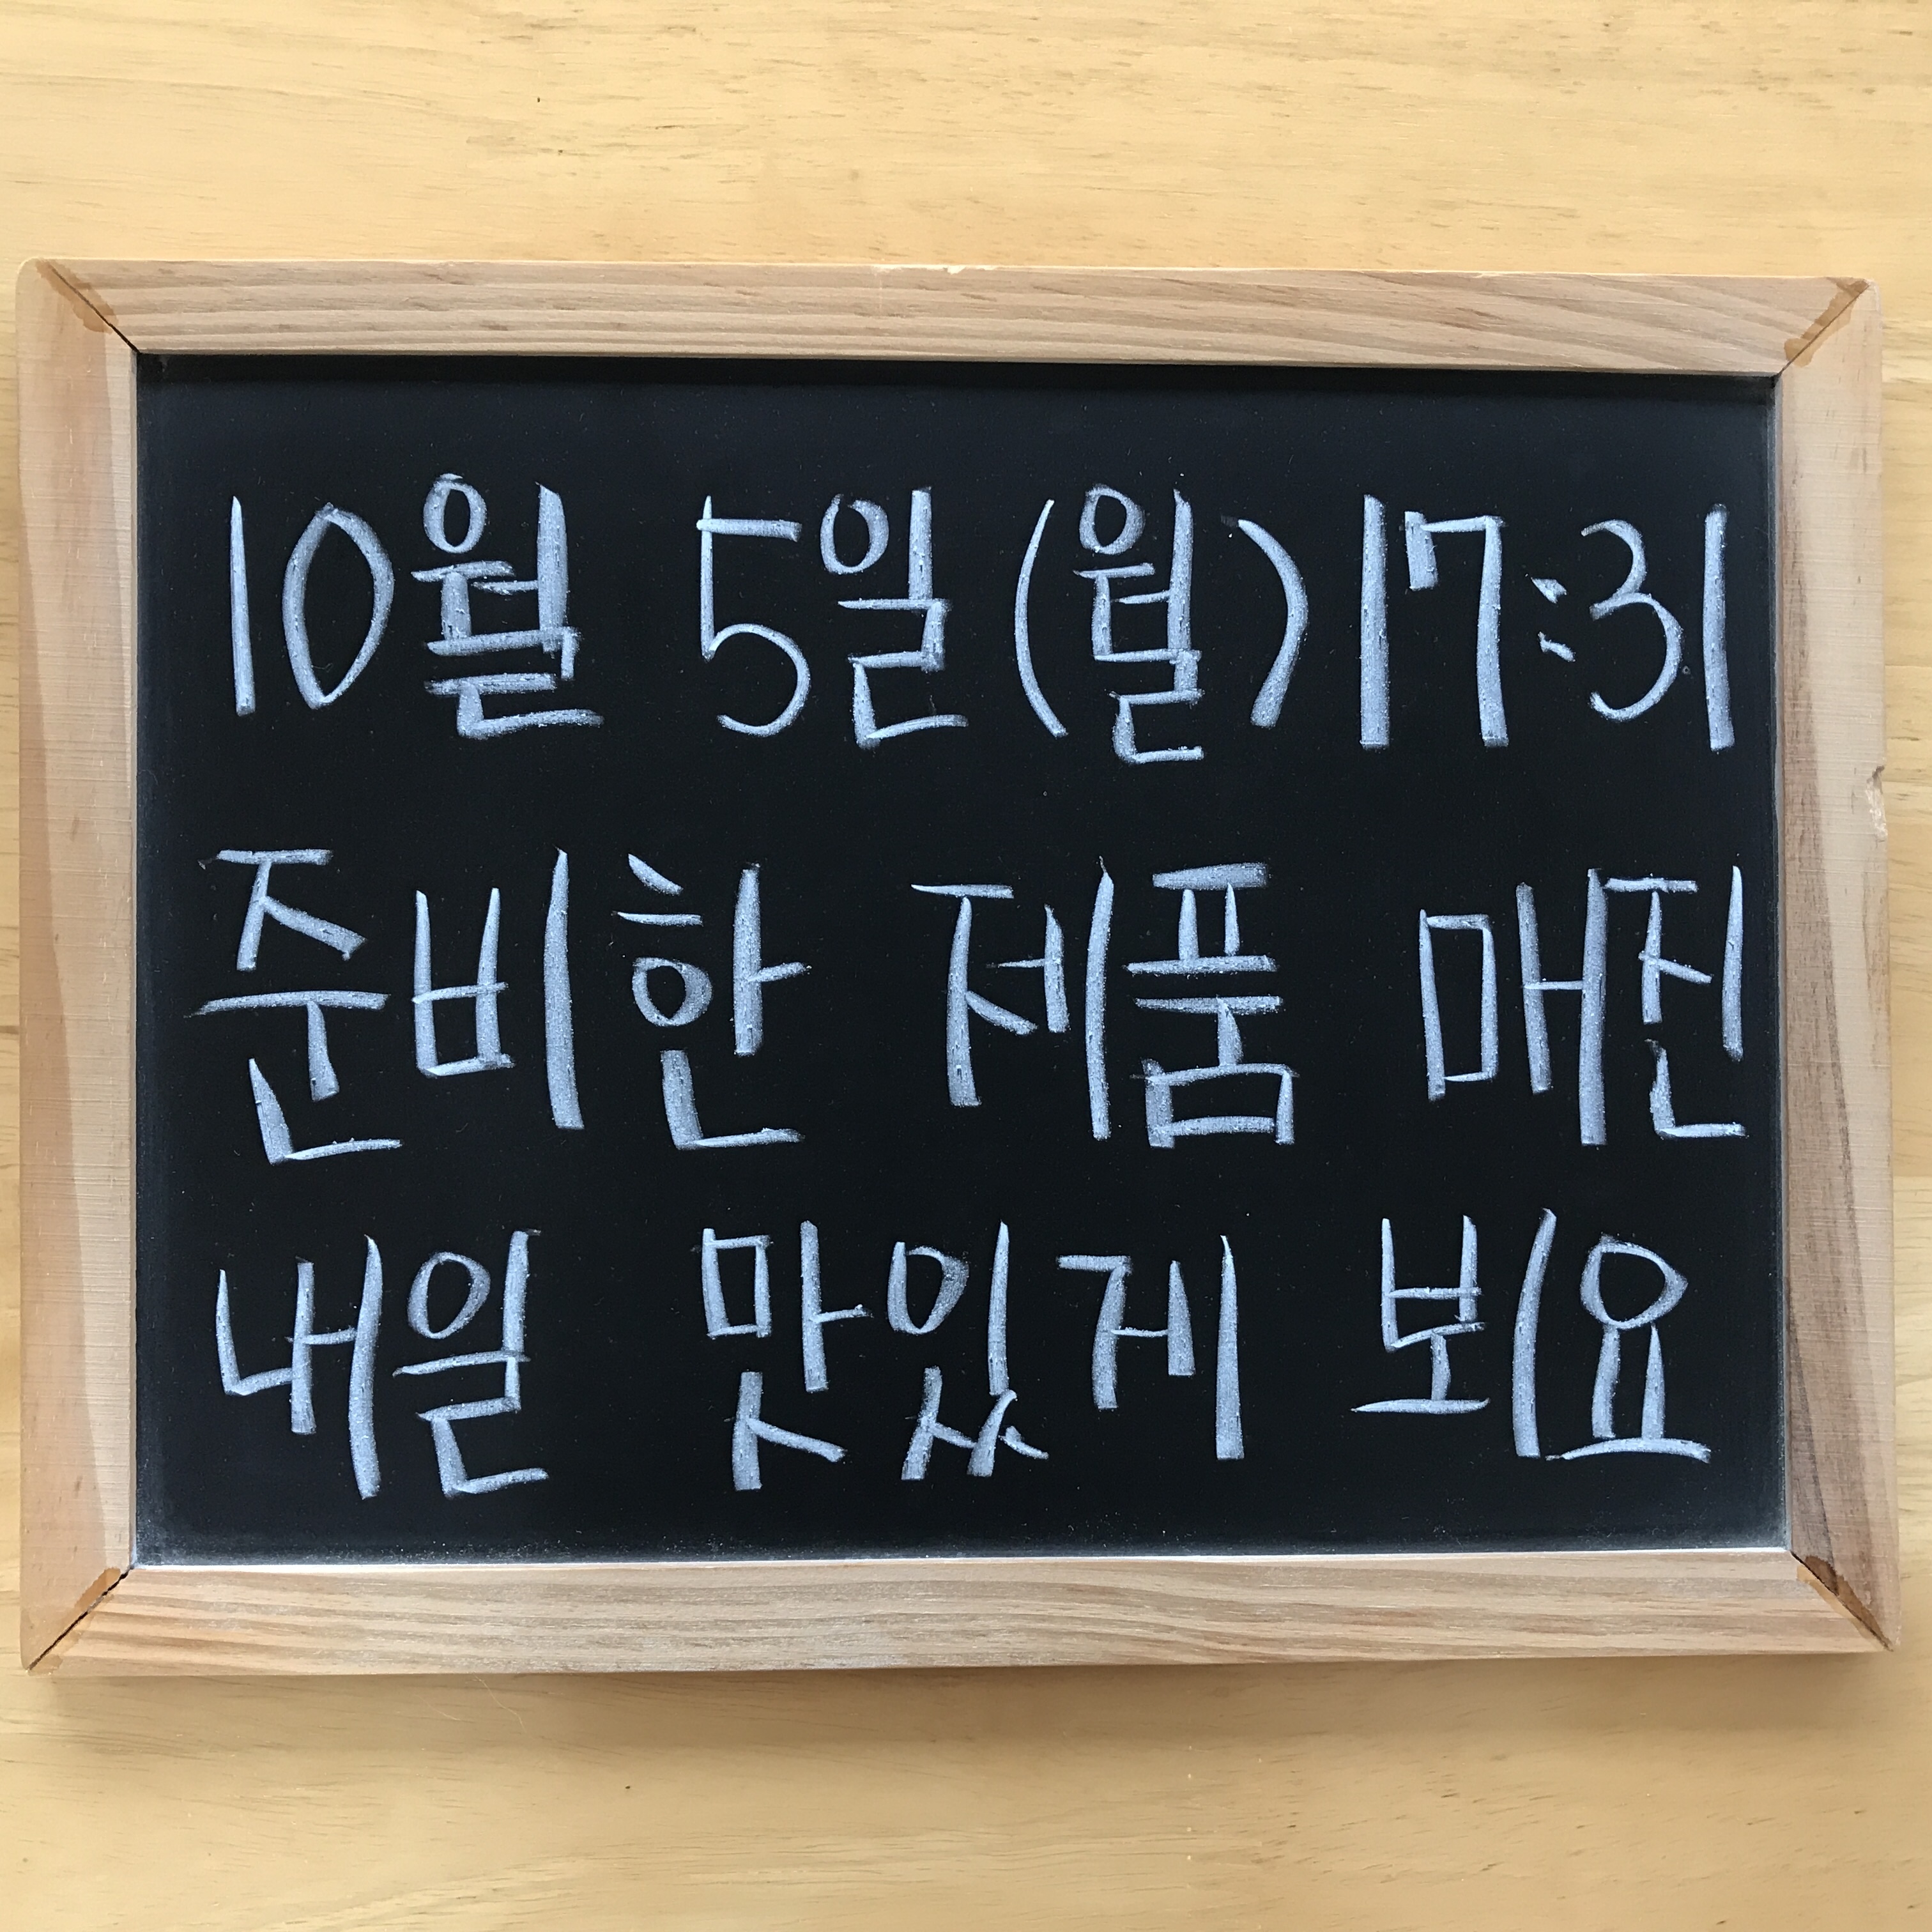 10월 5일(월) 17:31
준비한 제품 매진
내일 맛있게 뵈요